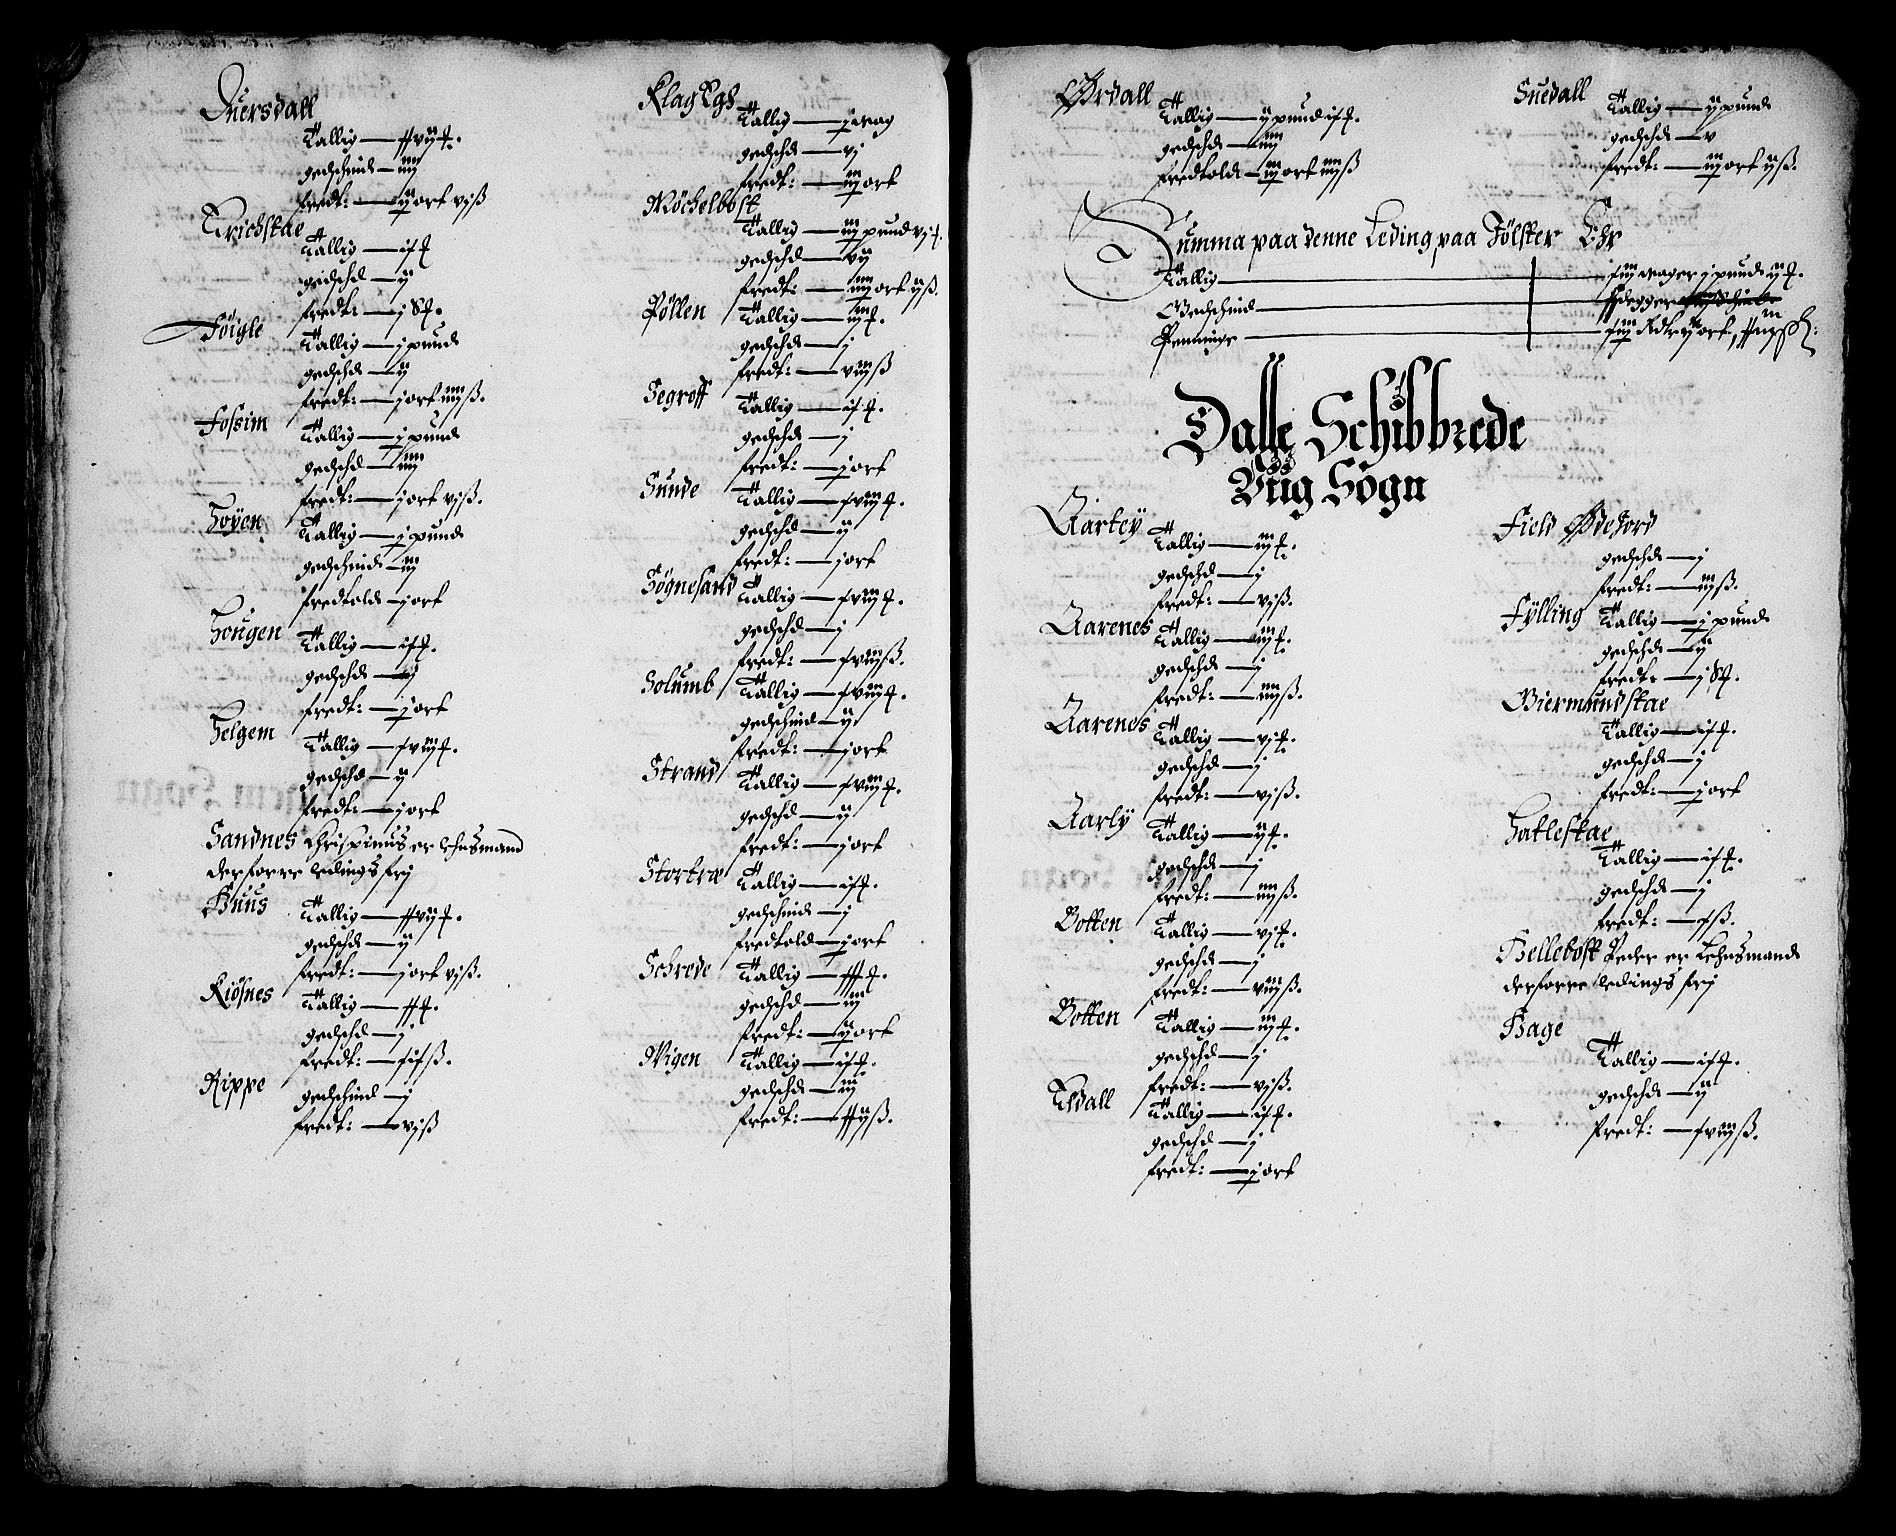 Quersdall
Tallig — xxvij ℔.
gedschind — iiij
fredt: — ij ort vj ß
Erichstae
Tallig — ix ℔
gedschd — ij
fredt: — j
Föigle
Tallig — j pund
gedschd — ij
fredt: — j ort iiij ß.
Fossim
Tallig — j pund
gedschd — iiij
fredt: — j ort vj ß.
Höyen
Tallig — j pund
gedschind — iij
fredtold — j ort
Hougen
Tallig — ix ℔.
gedschd — ij
fredt: — j ort
Helgem
Tallig — xviij ℔.
gedschd — ij
fredt: — j ort
Sandnes Chrispinus er Lehnsmand
derforre ledings frj
Huus
Tallig — xxvij ℔.
gedschd — ij
fredt: — j ort vj ß.
Kiösnes
Tallig — xx ℔.
gedschd — j
fredt: — xix ß.
Rippe
gedschind — j
fredt: — vj ß
Klageegs
Tallig — j wog
gedschd — vj
fredt: — iij ort
Möchelbost
Tallig — iij pund vj ℔.
gedschd — vij
fredt: — iiij ort ij ß.
Pöllen
Tallig — iiij ℔.
gedschd — j
fredt: — viij ß
Segroff
Tallig — ix ℔.
gedschd — j
fredt: — j ort
Sunde
Tallig — xviij ℔.
gedschd — ij
fredt: — j ort
Sögnesand
Tallig — xviij ℔.
gedschd — j
fredt: — xviij ß.
Solumb
Tallig — xviij ℔.
gedschind — ij
fredt: — j ort
Strand
Tallig — xviij ℔.
gedschd — ij
fredt: — j ort
Stortræ
Tallig — ix ℔.
gedschind — j
fredtold — j ort
Schrede
Tallig — xxx ℔.
gedschd — iij
fredt: — ij ort
Wigen
Tallig — ix ℔.
gedschd — iij
fredt: — xxij ß.
Ørdall
Tallig — ij pund ix ℔.
gedschd — iiij
fredtold — iij ort iiij ß
Suedall
Tallig — ij pund
gedschd — v
fredt: — iij ort ij ß.
Summa paa denne Leding paa Jölster Ehr
Tallig — wager j pund ij ℔.
Gedschind —
Penninge —
Dalle Schibbrede
Vtiig Sogn
Aartey
Tallig — iij ℔.
gedschd — j
fredt: — vj ß.
Aarenes
Tallig — iij ℔.
gedschd — j
fredt: — iiij ß.
Aarenes
Tallig — vj ℔.
gedschd — j
fredt: — vj ß.
Aarly
Tallig — ij ℔.
gedschd — j
fredt: — iiij ß.
Botten
Tallig — vj ℔.
gedschd — j
fredt: — viij ß.
Botten
Tallig — iij ℔.
gedschd — j
fredt: — vj ß.
Eldall
Tallig — ix ℔.
gedschd — j
fredt: — j ort
Field Ødejord
gedschd — j
fredt: — iij ß.
Fylling
Tallig — j pund
gedschd — ij
fredt: — j
Giermundstae
Tallig — ix ℔.
gedschd — j
fredt: — j ort
Hatlestae
Tallig — ix ℔.
gedschd — j
fredt: — x ß.
Hellebost Peder er Lehnsmand
derforre ledings frj
Hage
Tallig — ix ℔.
gedschd — ij
fredt: — xviij ß.